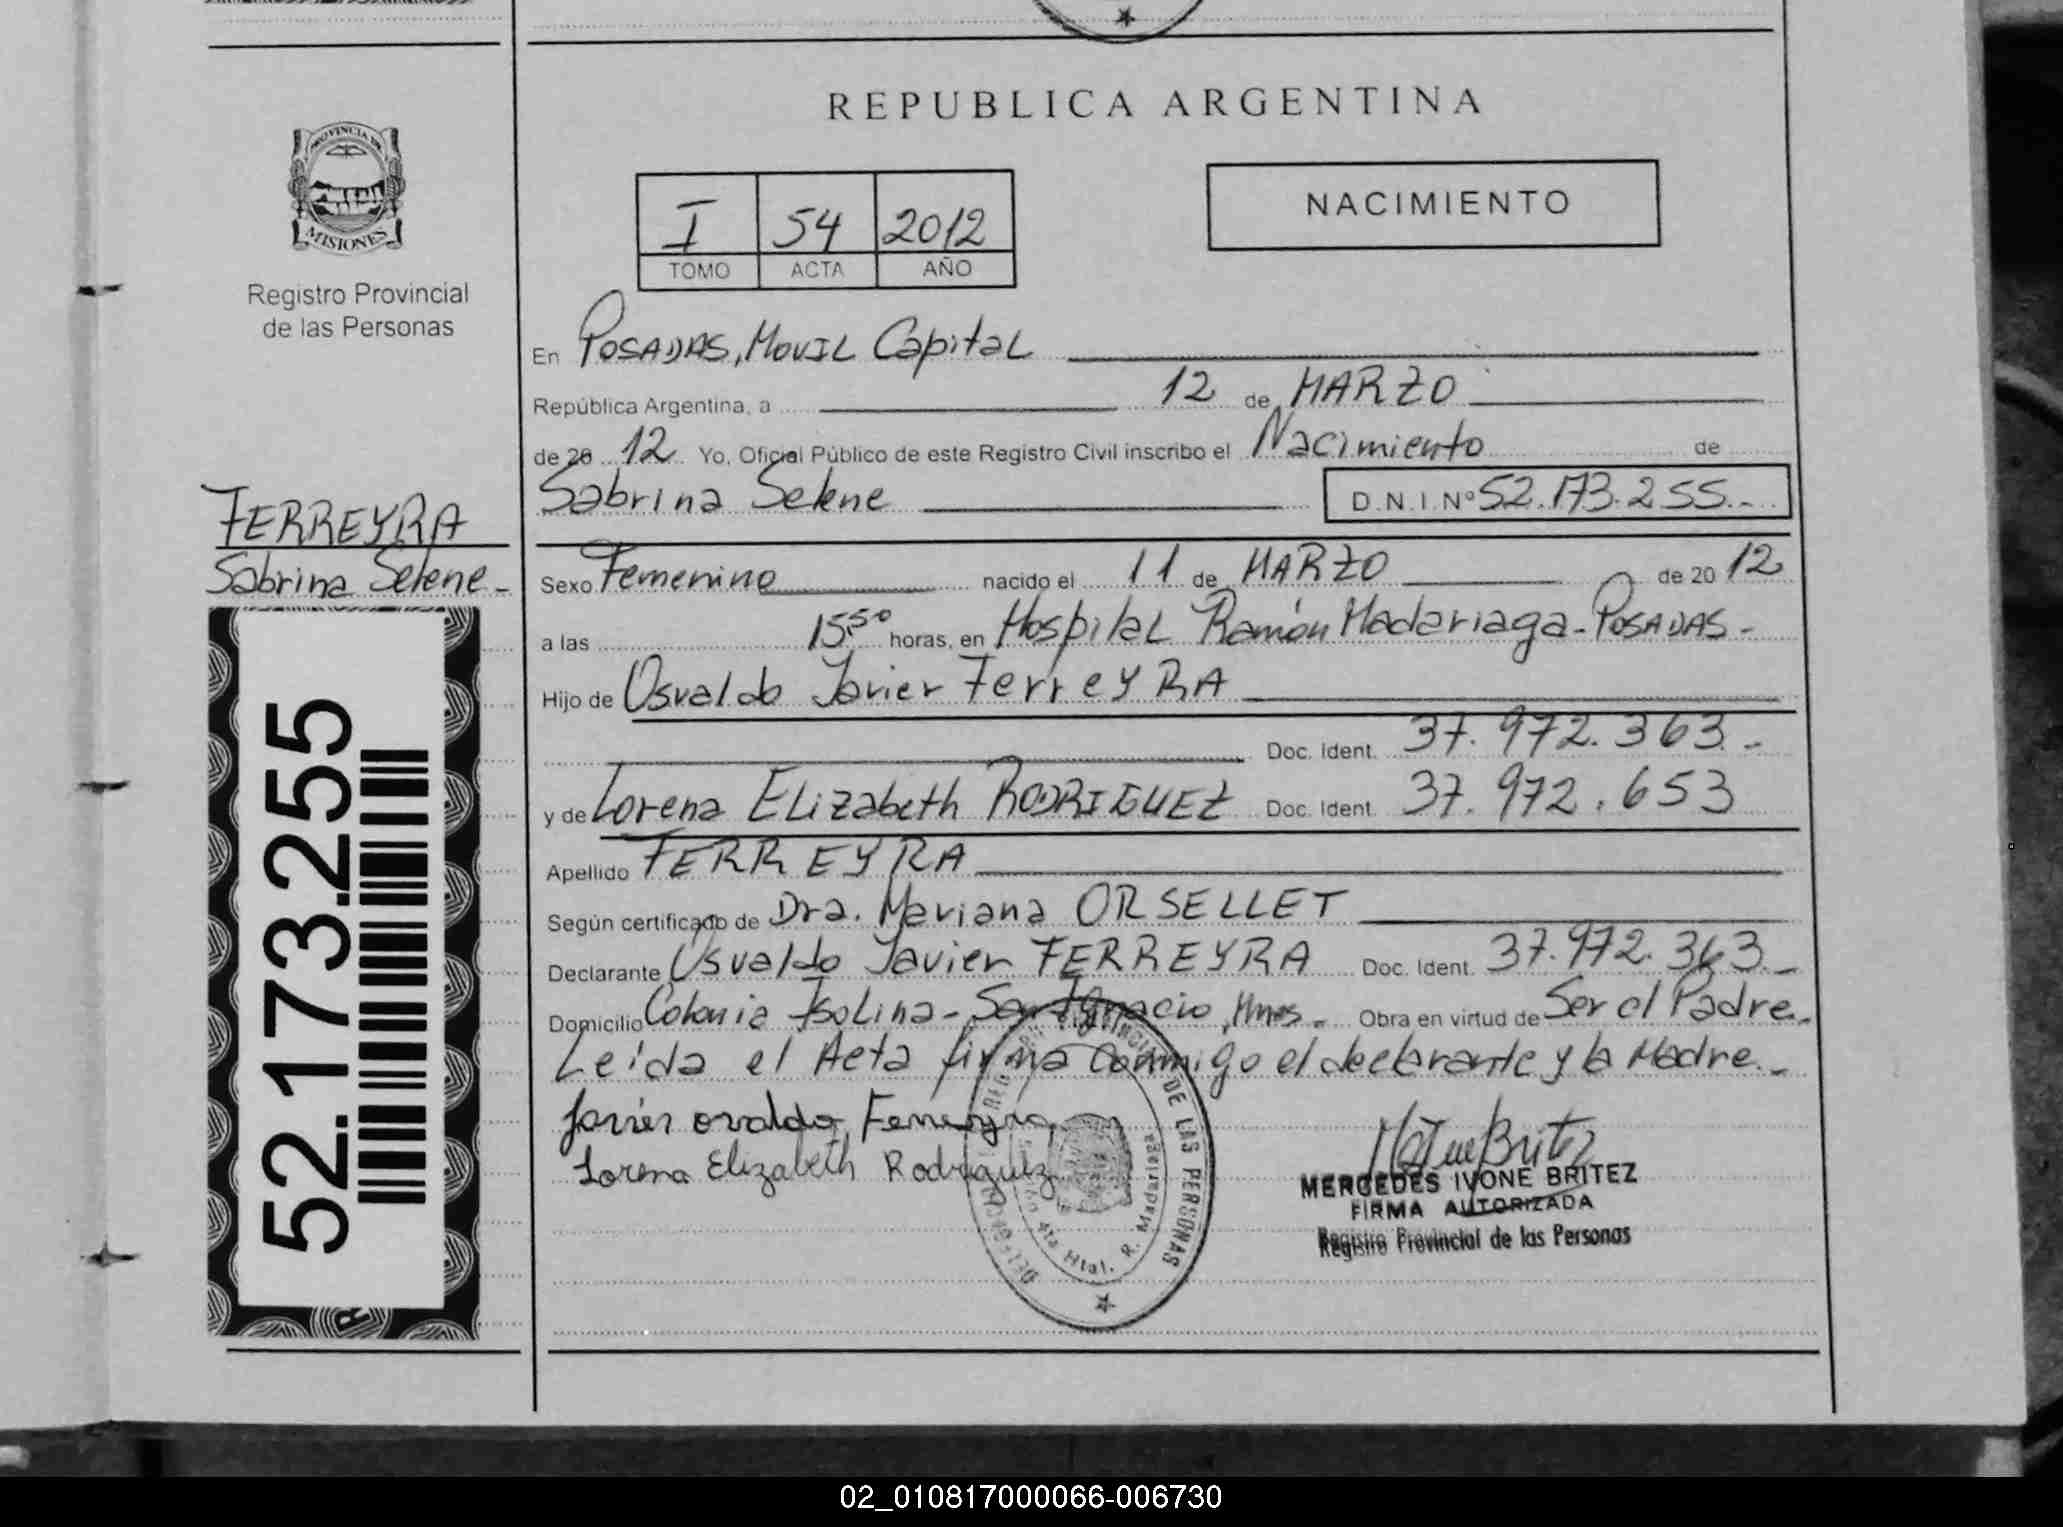 REPUBLICA ARGENTINA
PROVINCIA DE
MISIONES
Registro Provincial
de las Personas
NACIMIENTO
I 54 2012
TOMO ACTA AÑO
En POSADAS, MOVIL Capital
República Argentina, a 12 de MARZO
de 20 12 Yo, Oficial Público de este Registro Civil inscribo el Nacimiento de
Sabrina Selene D.N.I.Nº 52.173.255.-
FERREYRA
Sabrina Selene-
Sexo Femenino nacido el 11 de MARZO de 20 12
a las 15,50 horas, en Hospital Ramón Madariaga-POSADAS-
Hijo de Osvaldo Javier FerreYRA
Doc. Ident. 37.972.363-
y de Lorena Elizabeth RODRIGUEZ Doc. Ident. 37.972.653
Apellido FERREYRA
Según certificado de Dra. Mariana ORSELLET
Declarante Osvaldo Javier FERREYRA Doc. Ident. 37.972.363-
Domicilio Colonia Isolina-San Ignacio, Mnes- Obra en virtud de Ser el Padre.
Leída el Acta firma conmigo el declarante y la Madre.-
Javier osvaldo Ferreyra
Lorena Elizabeth Rodriguez
DE LAS PERSONAS
4ta Htal. R. Madariaga
Britez
MERCEDES IVONE BRITEZ
FIRMA AUTORIZADA
Registro Provincial de las Personas
52.173.255
02_010817000066-006730